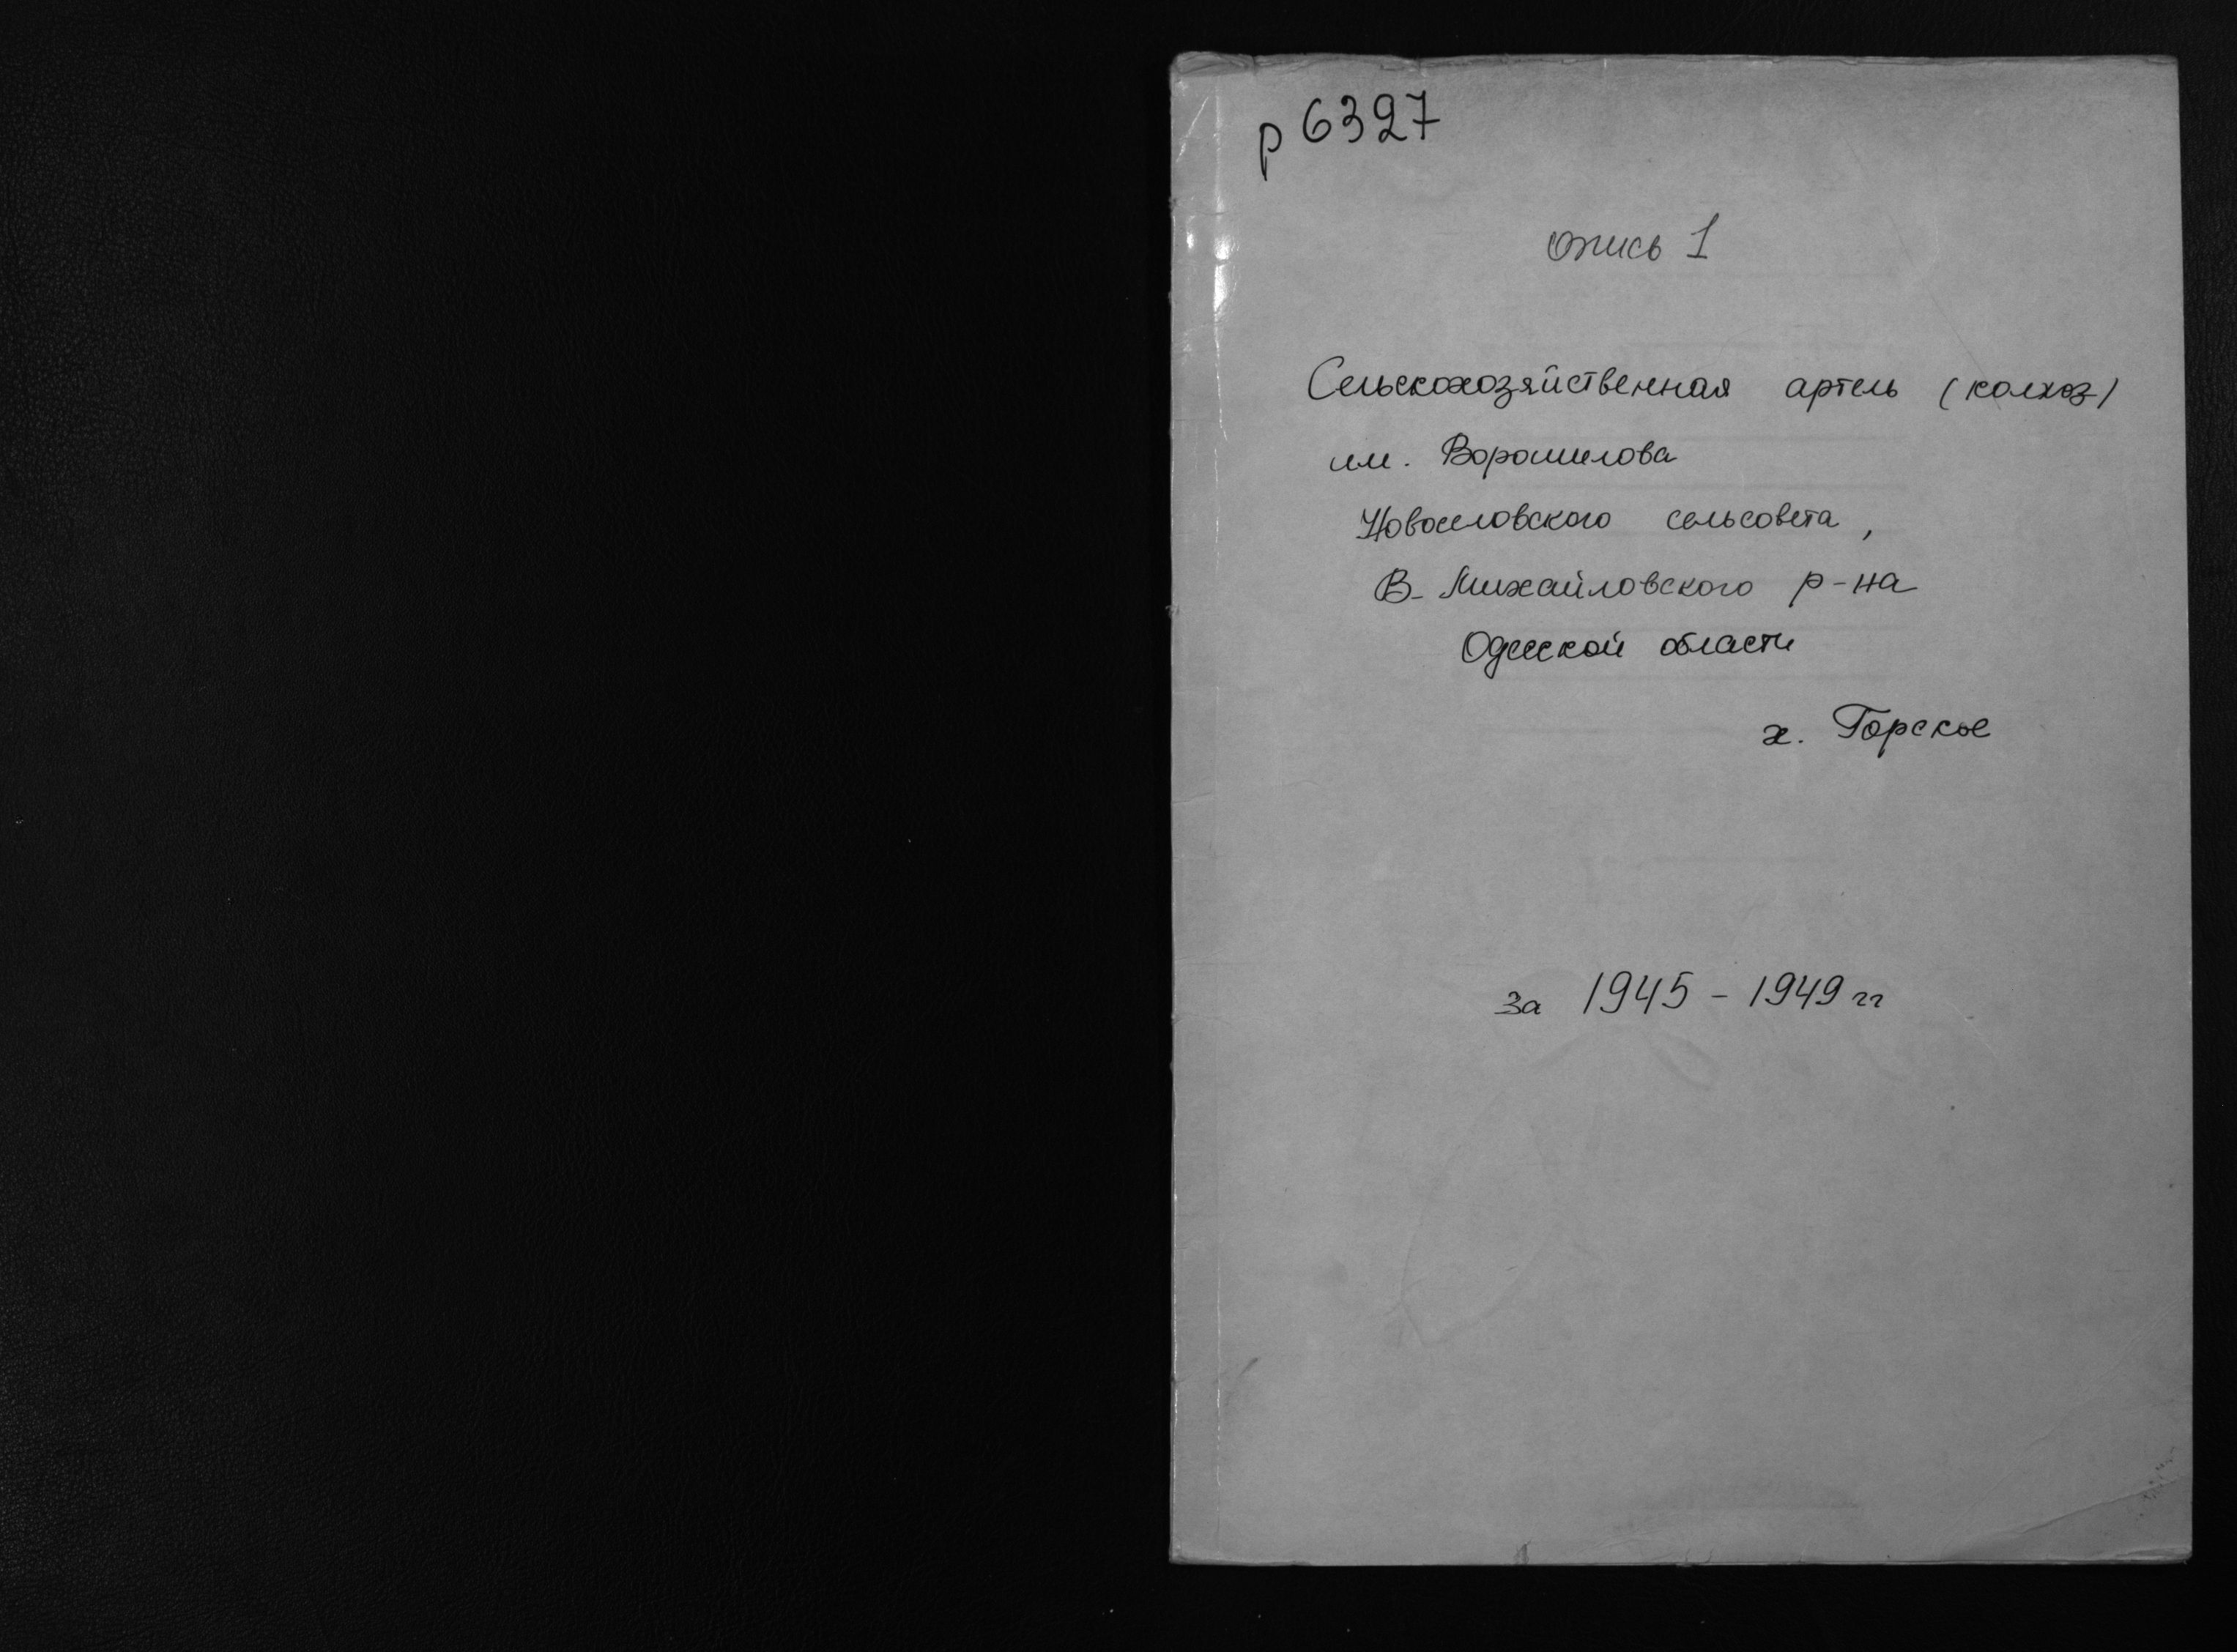 р 6327
опись 1
Сельскохозяйственная артель (колхоз)
им. Ворошилова
Новоселовского сельсовета,
В-Михайловского р-на
Одесской области
х. Горское
за 1945 - 1949 гг